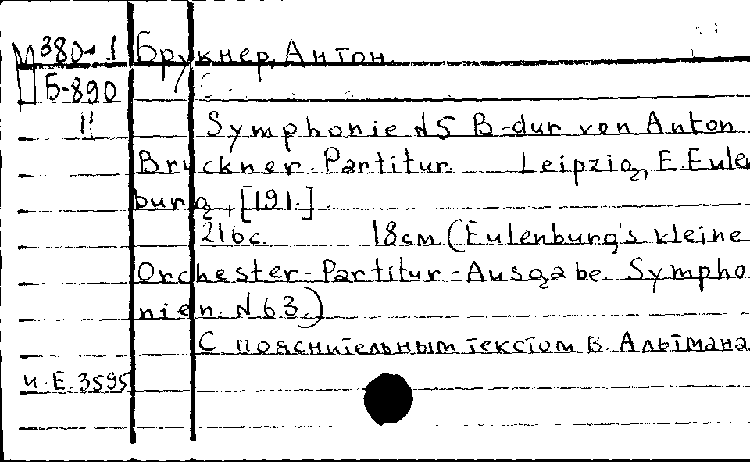 М380-1 Брукнер, Антон.
Б-890
II Symphonie N5 B-dur von Anton
Bruckner. Partitur. Leipzig, E. Eulen
burg, [191.]
216с. 18см (Eulenburg's kleine
Orchester-Partitur-Ausgabe. Sympho
nien. N 63.)
С пояснительным текстом В. Альтмана
И.Е. 3595